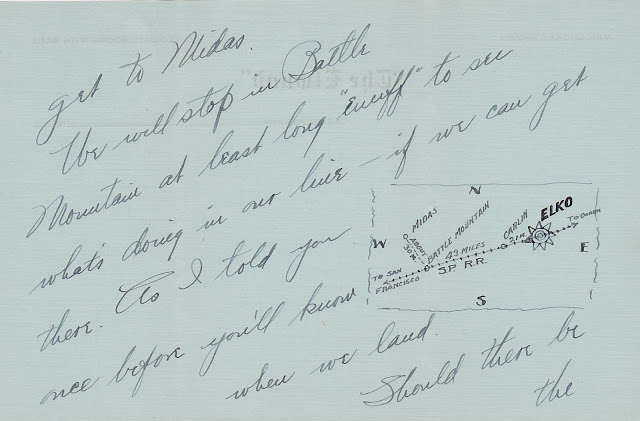 get to Midas.
We will stop in Battle
Mountain at least long "enuff" to see
what's doing in our line – if we can get
there. As I told you
once before you'll know
when we land. Should there be
the
N
MIDAS
ABOUT
BATTLE MOUNTAIN
43 MILES
CARLIN
ELKO
TO OGDEN
W
E
TO SAN
FRANCISCO
S.P. R.R.
S